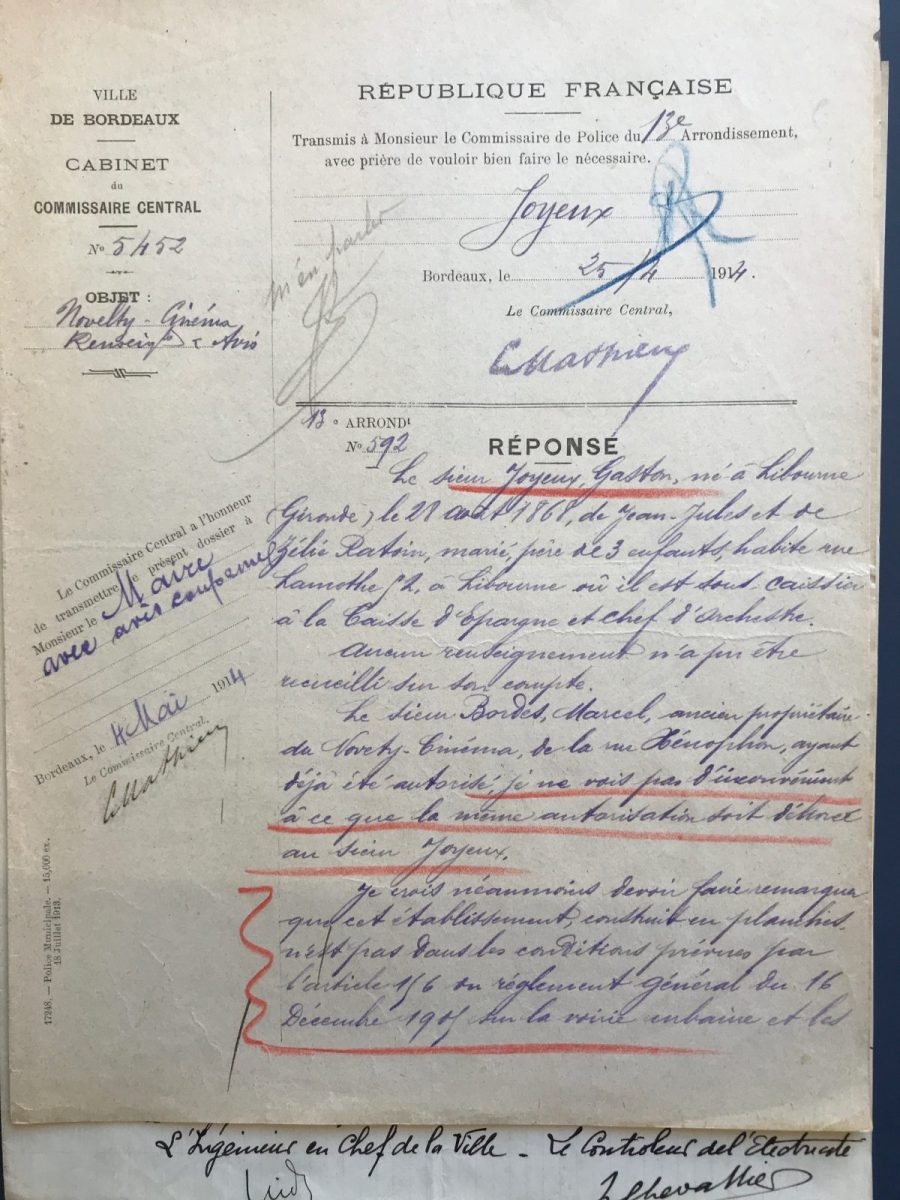 VILLE
DE BORDEAUX
CABINET
du
COMMISSAIRE CENTRAL
No 5452
OBJET :
Novelty-Cinéma
Renseigts & Avis
RÉPUBLIQUE FRANÇAISE
Transmis à Monsieur le Commissaire de Police du 13e Arrondissement,
avec prière de vouloir bien faire le nécessaire.
Joyeux
Bordeaux, le 25/4 1914.
Le Commissaire Central,
Mathieu
m'en parler
13e ARRONDt
No 592
RÉPONSE
Le sieur Joyeux, Gaston, né à Libourne
(Gironde) le 28 août 1868, de Jean-Jules et de
Zélie Ratoin, marié, père de 3 enfants, habite rue
Lamothe 52, à Libourne où il est sous-caissier
à la Caisse d'Epargne et chef d'orchestre.
Aucun renseignement n'a pu être
recueilli sur son compte.
Le sieur Bordes, Marcel, ancien propriétaire
du Novety-Cinéma, de la rue Xénophon, ayant
déjà été autorisé, je ne vois pas d'inconvénient
à ce que la même autorisation soit délivrée
au sieur Joyeux.
Je crois néanmoins devoir faire remarquer
que cet établissement, construit en planches,
n'est pas dans les conditions prévues par
l'article 156 du règlement général du 16
Décembre 1905 sur la voirie urbaine et les
Le Commissaire Central a l'honneur
de transmettre le présent dossier à
Monsieur le Maire
avec avis conforme
Bordeaux, le 4 Mai 1914
Le Commissaire Central,
Mathieu
17248. — Police Municipale. — 15,000 ex.
18 Juillet 1913.
L'Ingénieur en Chef de la Ville - Le Controleur de l'Electricité
Chevallier